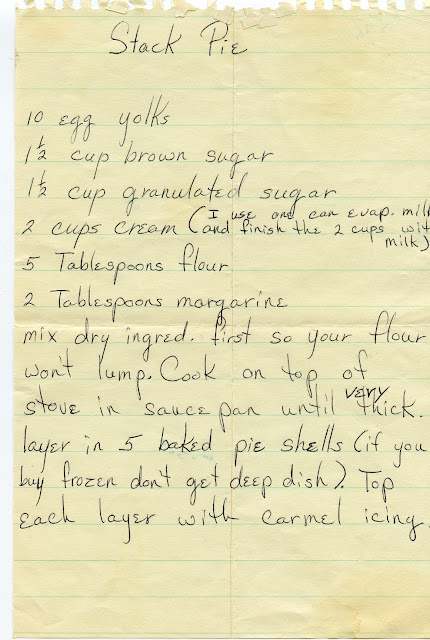 Stack Pie
10 egg yolks
1 1/2 cup brown sugar
1 1/2 cup granulated sugar
2 cups cream (I use one can evap. milk
and finish the 2 cups with
milk)
5 Tablespoons flour
2 Tablespoons margarine
mix dry ingred. first so your flour
won't lump. Cook on top of
stove in sauce pan until very thick.
layer in 5 baked pie shells (if you
buy frozen don't get deep dish). Top
each layer with carmel icing.